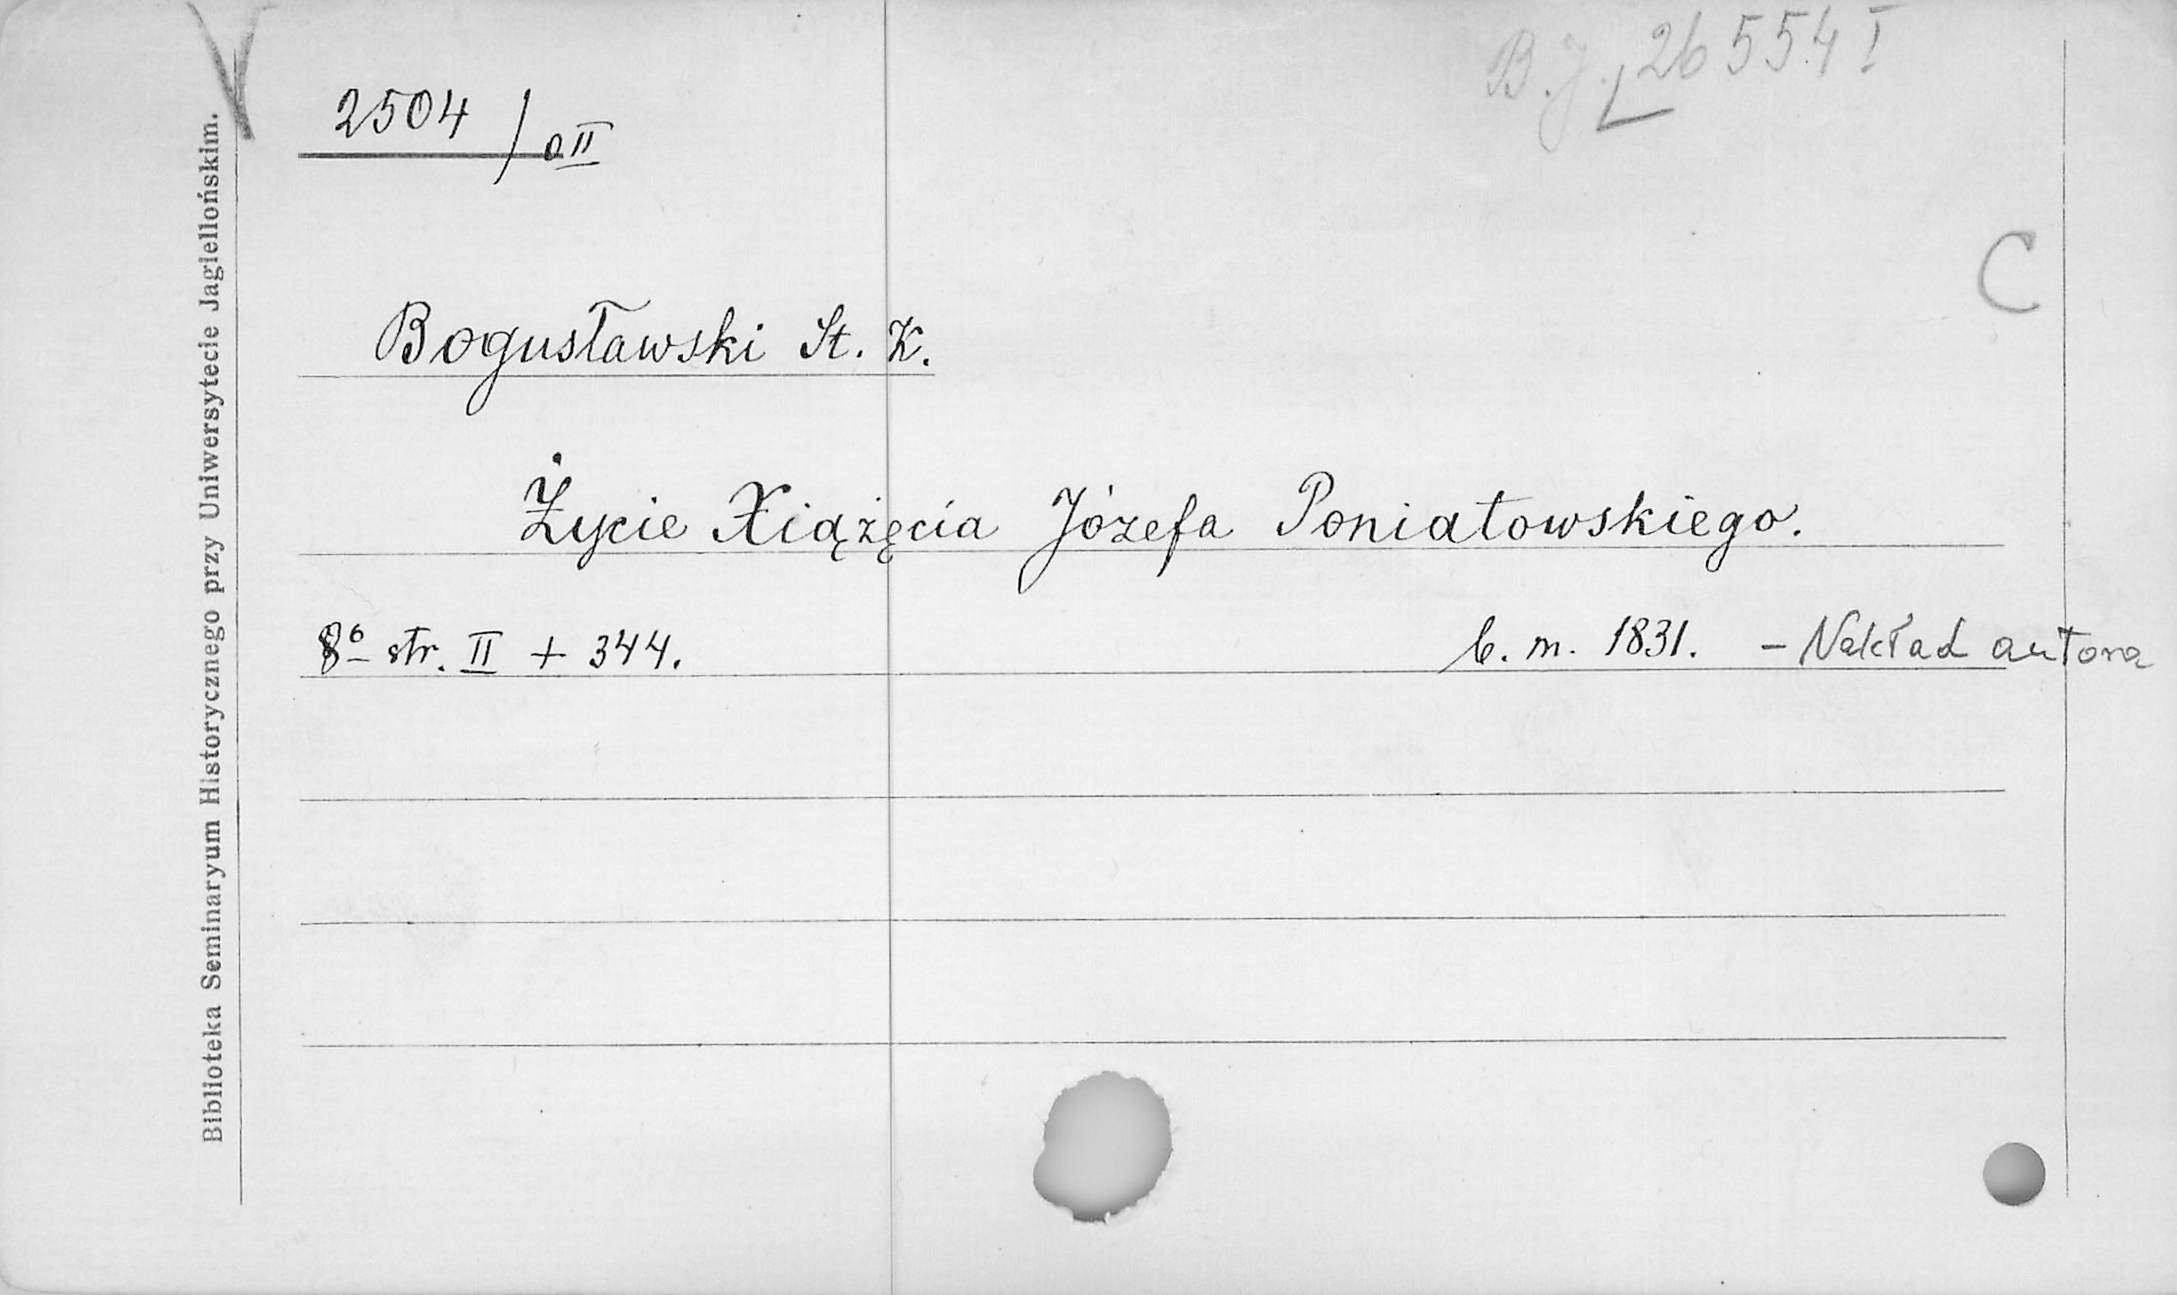 V
B.J. 26554 I
2504 / a II
C
Bogusławski St. K.
Życie Xiążęcia Józefa Poniatowskiego.
8º str. II + 344.
b. m. 1831. – Nakład autora
Biblioteka Seminaryum Historycznego przy Uniwersytecie Jagiellońskim.